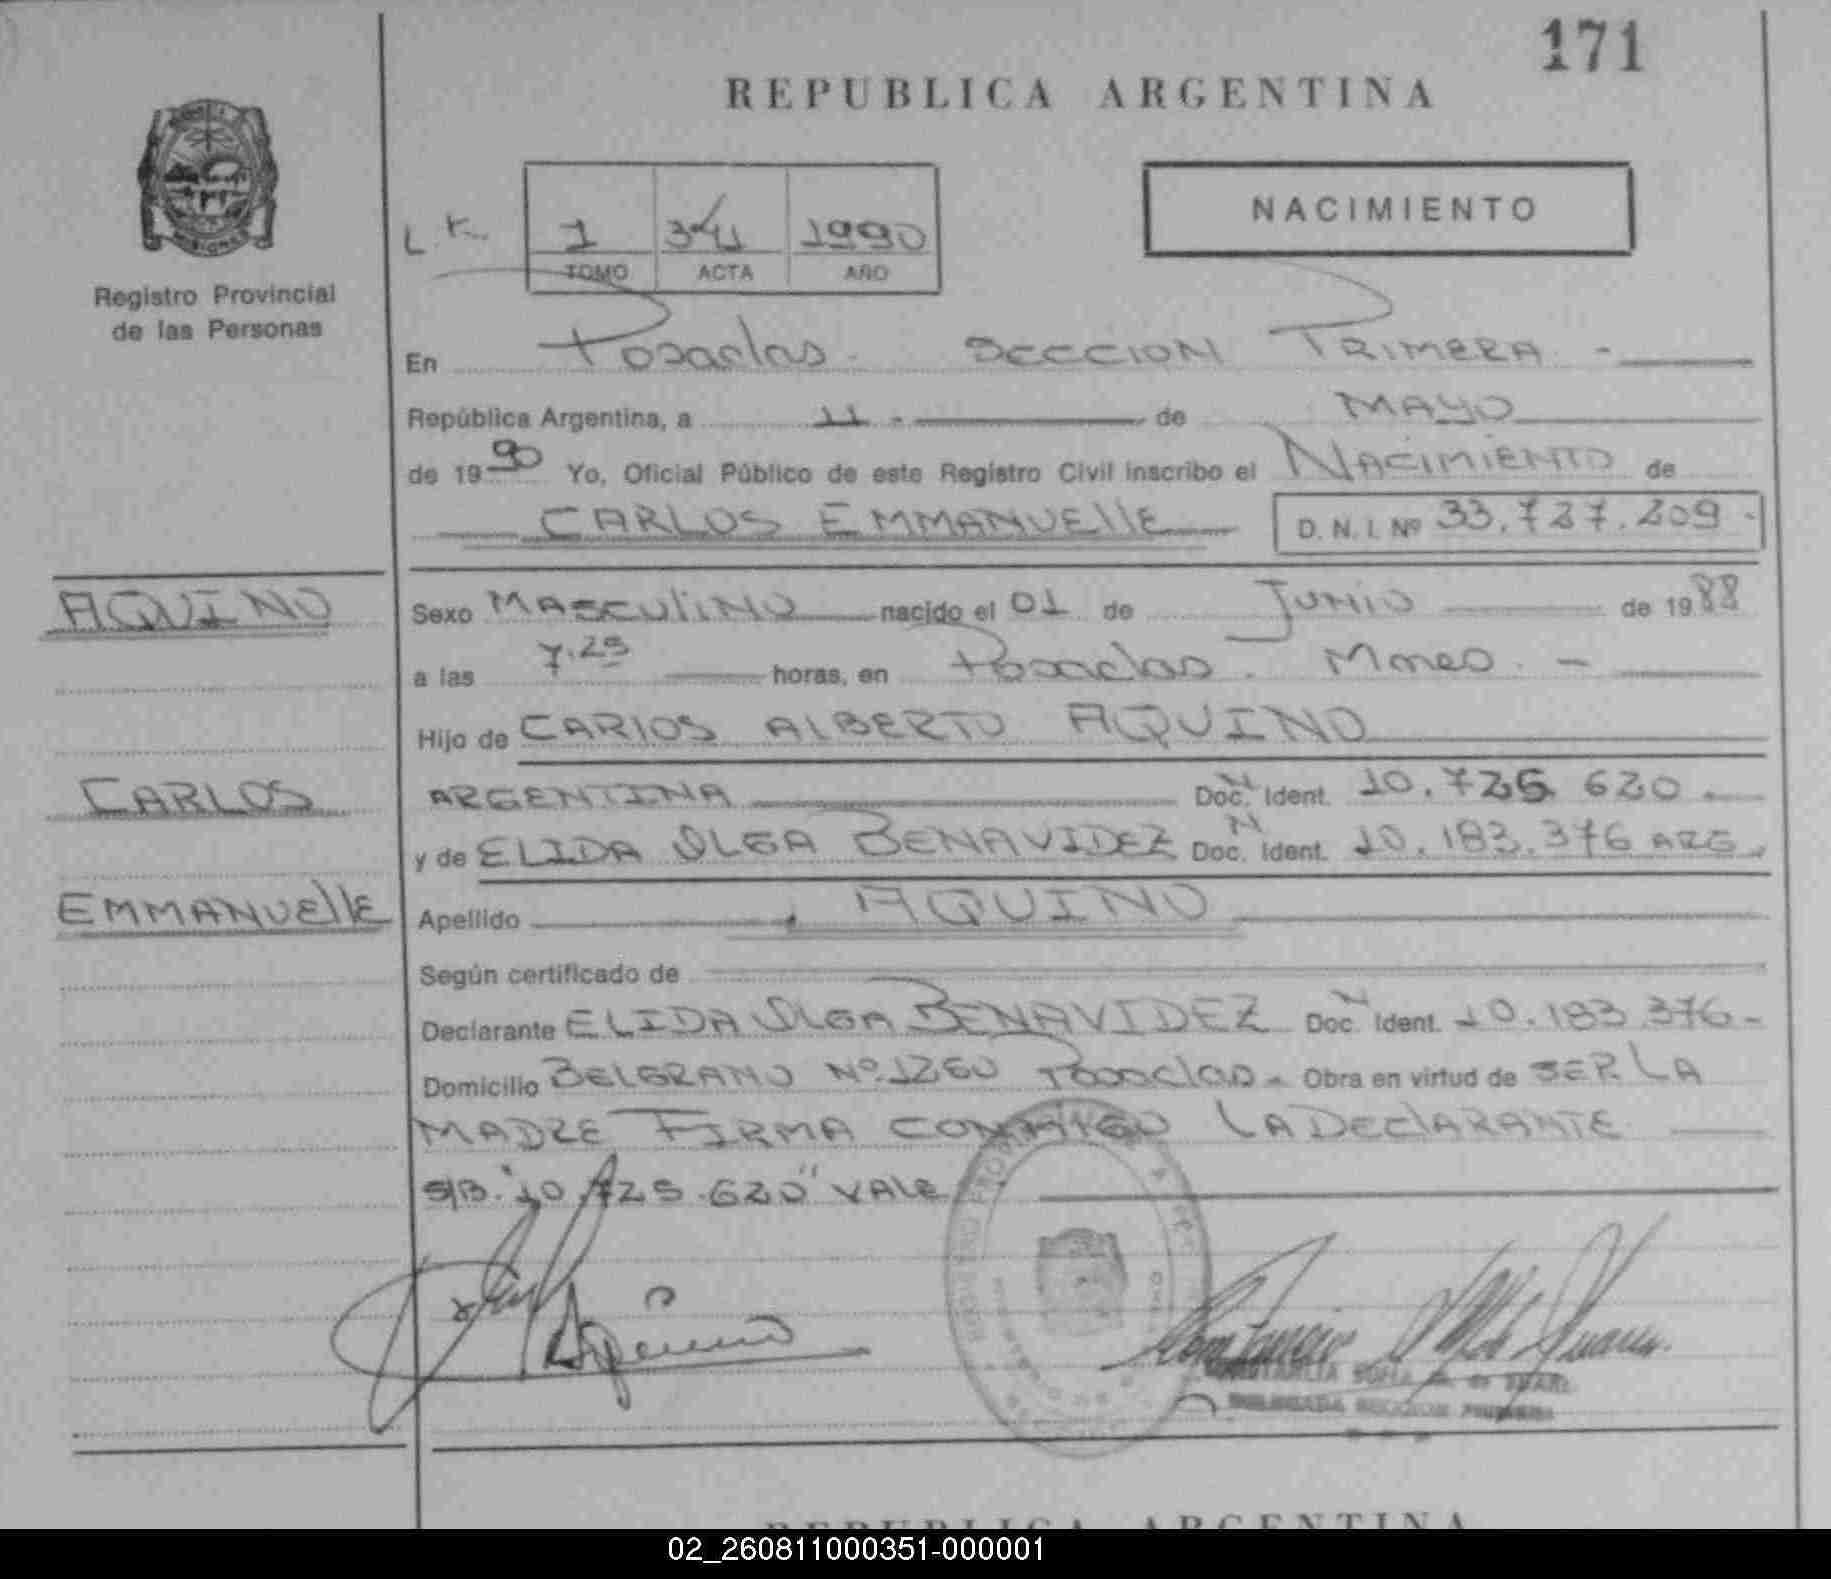 171
REPUBLICA ARGENTINA
NACIMIENTO
1 341 1990
TOMO ACTA AÑO
Registro Provincial
de las Personas
En Posadas. SECCION PRIMERA. -
República Argentina, a 11 - de MAYO
de 1990 Yo, Oficial Público de este Registro Civil inscribo el NACIMIENTO de
CARLOS EMMANUElle D. N. I. Nº 33.727.209 -
AQUINO
Sexo MASCULINO nacido el 01 de JUNIO de 1988
a las 7.25 horas, en Posadas. Mnes. -
Hijo de CARLOS ALBERTO AQUINO
CARLOS
ARGENTINA Doc. N Ident. 10.725 620 -
y de ELIDA OLGA BENAVIDEZ Doc. N Ident. 10.183.376 ARG.
EMMANUElle
Apellido AQUINO
Según certificado de
Declarante ELIDA OLGA BENAVIDEZ Doc. N Ident. 10.183.376 -
Domicilio BELGRANO Nº 1260 Posadas - Obra en virtud de SER LA
MADRE FIRMA CONMIGO LA DEClARANTE
S/B. "10.725.620" VALE
DELEGADA SECCION PRIMERA
REPUBLICA ARGENTINA
02_260811000351-000001